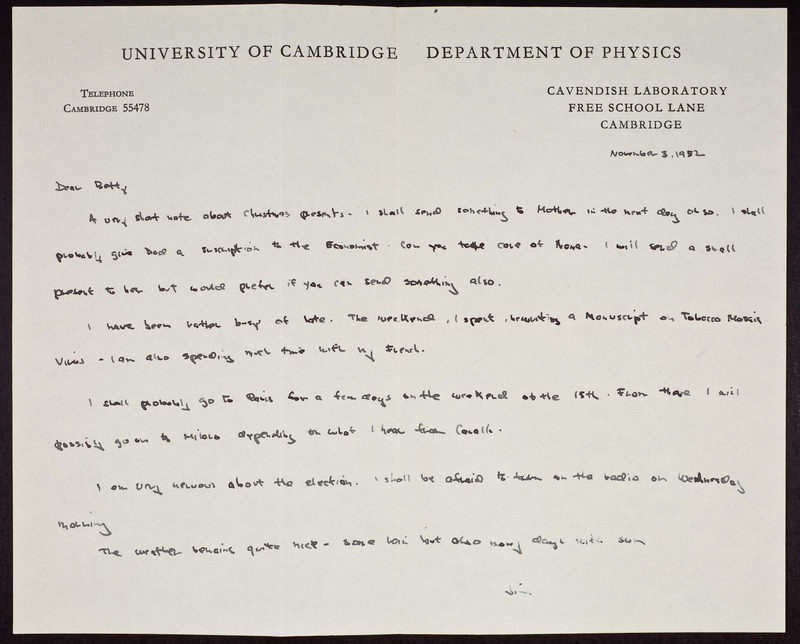 UNIVERSITY OF CAMBRIDGE DEPARTMENT OF PHYSICS
TELEPHONE
CAMBRIDGE 55478
CAVENDISH LABORATORY
FREE SCHOOL LANE
CAMBRIDGE
November 3, 1952
Dear Betty
A very short note about Christmas presents - I shall send something to Mother in the next day or so. I shall
probably give Dad a suscription to the Economist. Can you take care of Nana - I will send a small
present to her but would prefer if you can send something also.
I have been rather busy of late. The weekend, I spent, rewriting a Manuscript on Tobacco Mosaic
Virus - I am also spending much time with my French.
I shall probably go to Paris for a few days on the weekend of the 15th. From there I will
possibly go on to Milano depending on what I hear from Cavalli.
I am very nervous about the election. I shall be afraid to turn on the radio on Wednesday
morning
The weather remains quite nice - some rain but also many days with sun
Jim.